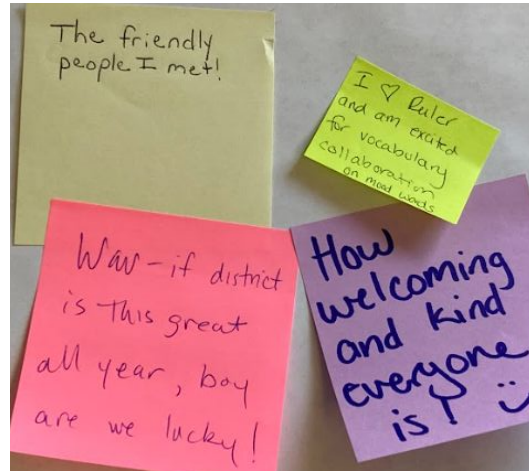 The friendly
people I met!
I ♡ Ruler
and am excited
for vocabulary
collaboration
on mood words
Wow - if district
is this great
all year, boy
are we lucky!
How
welcoming
and kind
everyone
is! :)